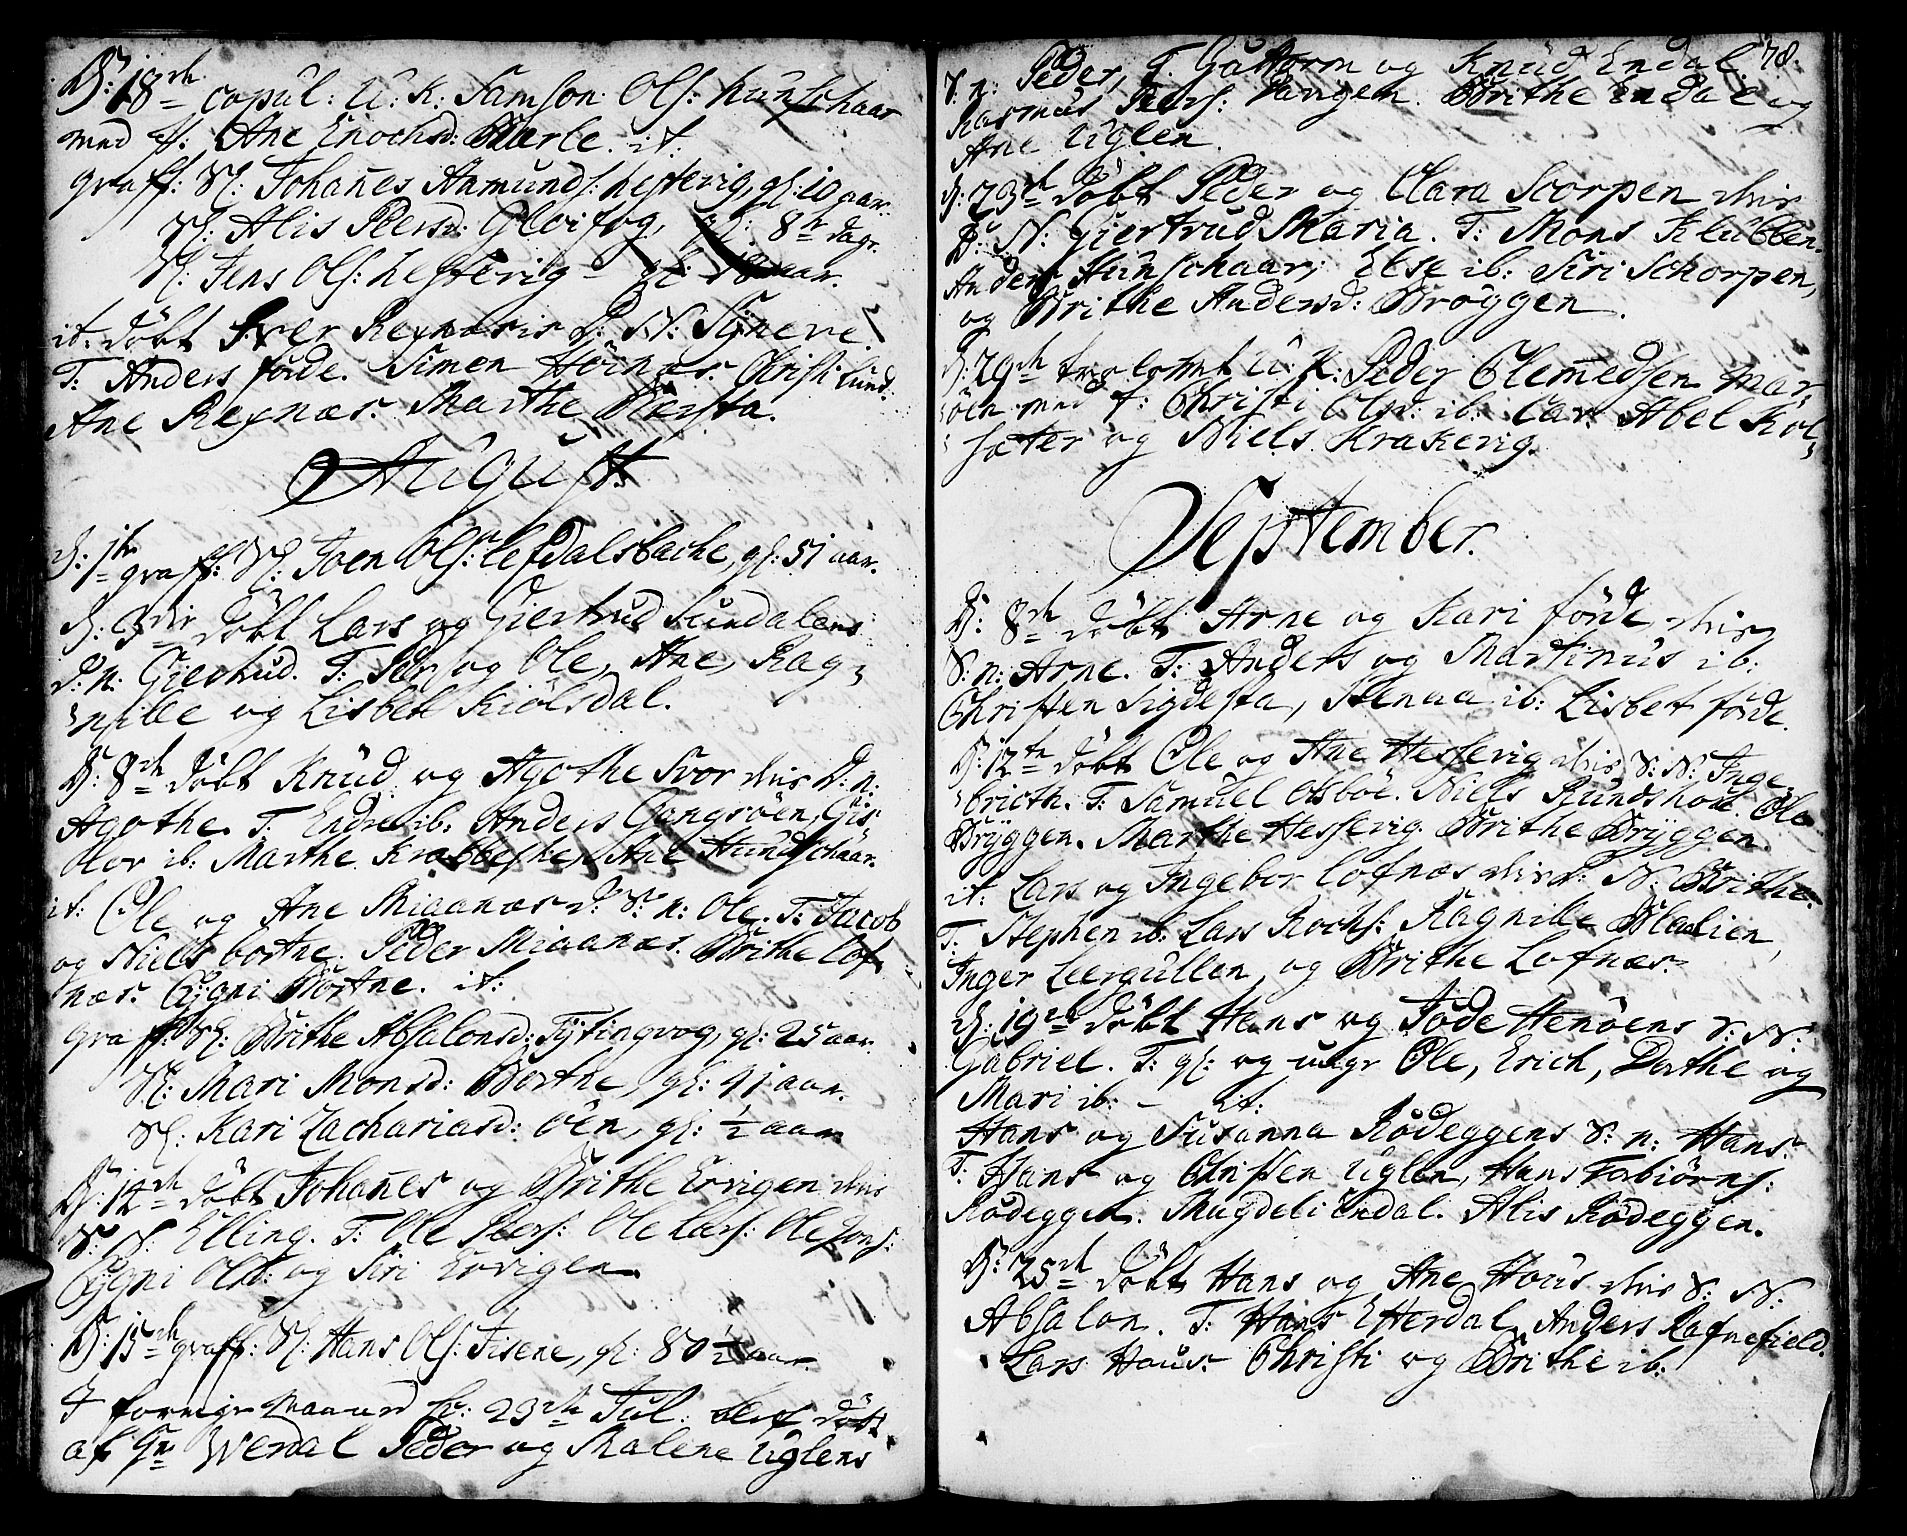 D: 18de copul: U: K: Samson Ols: Hunschaar
med ff: Ane Enochsd: Marle. it:
graff: Sl: Johanes Aamunds: Hesterig, gl: 10 aar.
Sl: Alis Persd: Gloifog, gl: 8te dage.
Sl: Jens Ols: Hesterig gl: aar.
it: döbt Iver Rexnæsis D: N: Synneve.
T: Anders förde. Simen Hoinæs. Christi Lund.
Ane Rexnæs. Marthe
August:
D: 1te graff: Sl: Joen Ols: Lefdalsbache, gl: 51 aar.
D: 3die döbt Lars og Giertrud Sundalens
D: n: Giertrud. T: Per og Ole, Ane, Rag-
nille og Lisbet Kiölsdal.
D: 8de döbt Knud og Agothe Svor dris D: n:
Agothe. T: Endre ib: Anders Gangsöen, Gis
Olor ib: Marthe Krabbeshe, Ane Hundschaar.
it: Ole og Ane Miaanæs d: S: n: Ole. T: Jacob
og Niels borthe. Peder Miaanæs. Brithe Lof-
næs. Gygni Borthe. it:
graff: Sl: Brithe Absalonsd: Tytingvog, gl: 25 aar.
Sl: Mari Monsd: Borthe, gl: 41 aar.
Sl: Kari Zachariasd: öen, gl: ½ aar
D: 12de döbt Johanes og Brithe Ervigen dris
S: N: Elling. T: Ole Pers: Ole Lars: Ole Jons:
Gygni Olsd: og Siri Ervigen.
D: 15de graff: Sl: Hans Ols: Isene, gl: 80 ½ aar
I forrige maaned D: 23de Jul: blef döbt
af Hr: Werdal Peder og Malene Uglens
78.
S: n: Peder, T. Guttorm og Knud Endal.
Rasmus Pers: Vavigen. Brithe Endal og
Ane Uglen.
D: 23de döbt Peder og Clara Scorpen dris
D: N: Giertrud Maria. T: Mons Klubben.
Anders Hunschaar, Else ib: Siri Schorpen,
og Brithe Andersd: Bröggen.
D: 29de trolovet U: K: Peder Clemedsen Mar-
öen med f: Christi Olsd: ib: Cav: Abel Kol-
sæter og Niels Krakevig.
September.
D: 8de döbt Arne og Kari förde, dris
S: n: Arne. T: Anders og Martinus ib:
Christen Sigdesta, Stenaa ib: Lisbet förde.
D: 12te döbt Ole og Ane Hessevig dris S: N: Inge-
bricth. T: Samuel Osböe. Niels Rundshoul. Ole
Bryggen. Marthe Hessevig. Brithe Bryggen.
it: Lars og Ingebor Lofnæs dris D: N: Brithe.
T: Stephen ib: Lars Rochs: Ragnille Marlien,
Inger Leergullen, og Brithe Lofnæs.
D: 19de döbt Hans og Jode Henöens S: N:
Gabriel. T: gl: og unge Ole, Erich, Dorthe og
Mari ib: – it:
Hans og Susanna Rödeggens S: n: Hans.
T: Hans og Christen Uglen, Hans Torbiörns:
Rödeggen. Magdeli Endal. Alis Rödeggen.
D: 25de döbt Hans og Ane Hous dris S: N:
Absalon. T: Hans Etterdal, Anders Rafnefield.
Lars Hous. Christi og Brithe ib: